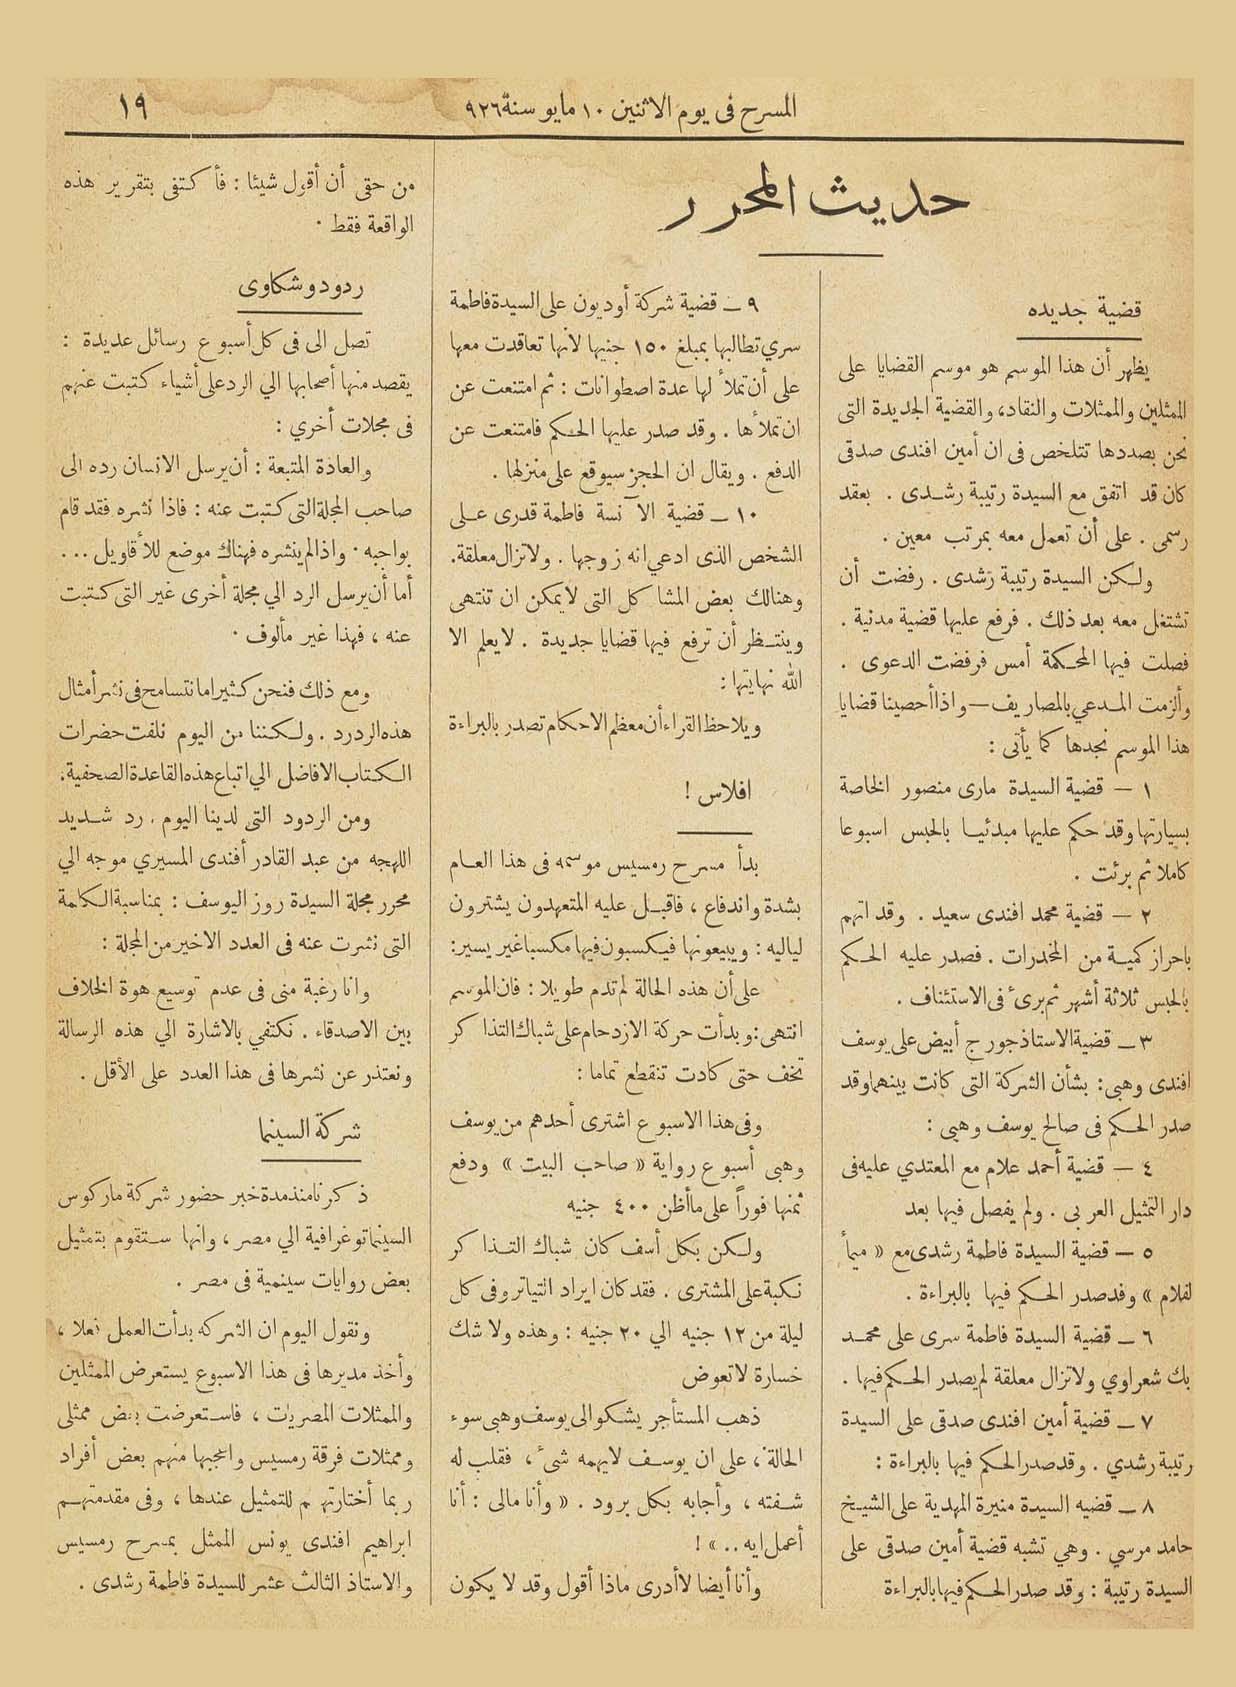 المسرح فى يوم الاثنين ١٠ مايو سنة ٩٢٦
١٩
حديث المحرر
قضية جديده
يظهر أن هذا الموسم هو موسم القضايا على
الممثلين والممثلات والنقاد، والقضية الجديدة التى
نحن بصددها تتلخص فى ان أمين افندى صدقى
كان قد اتفق مع السيدة رتيبة رشدى . بعقد
رسمى . على أن تعمل معه بمرتب معين .
ولكن السيدة رتيبة رشدى . رفضت أن
تشتغل معه بعد ذلك . فرفع عليها قضية مدنية .
فصلت فيها المحكمة أمس فرفضت الدعوى .
وألزمت المدعي بالمصاريف — واذا أحصينا قضايا
هذا الموسم نجدها كما يأتى :
١ — قضية السيدة مارى منصور الخاصة
بسيارتها وقد حكم عليها مبدئيا بالحبس اسبوعا
كاملا ثم برئت .
٢ — قضية محمد افندى سعيد . وقد اتهم
باحراز كمية من المخدرات . فصدر عليه الحكم
بالحبس ثلاثة أشهر ثم برىء فى الاستئناف .
٣ — قضية الاستاذ جورج أبيض على يوسف
افندى وهبى : بشأن الشركة التى كانت بينهما وقد
صدر الحكم فى صالح يوسف وهبى :
٤ — قضية أحمد علام مع المعتدي عليه فى
دار التمثيل العربى . ولم يفصل فيها بعد
٥ — قضية السيدة فاطمة رشدى مع « مينأ
لفلام » وقد صدر الحكم فيها بالبراءة .
٦ — قضية السيدة فاطمة سرى على محمد
بك شعراوي ولا تزال معلقة لم يصدر الحكم فيها .
٧ — قضية أمين افندى صدقى على السيدة
رتيبة رشدي . وقد صدر الحكم فيها بالبراءة :
٨ — قضيه السيدة منيرة المهدية على الشيخ
حامد مرسي . وهي تشبه قضية أمين صدقى على
السيدة رتيبة : وقد صدر الحكم فيها بالبراءة
٩ — قضية شركة أوديون على السيدة فاطمة
سري تطالبها بمبلغ ١٥٠ جنيها لأنها تعاقدت معها
على أن تملأ لها عدة اصطوانات : ثم امتنعت عن
ان تملأها . وقد صدر عليها الحكم فامتنعت عن
الدفع . ويقال ان الحجز سيوقع على منزلها .
١٠ — قضية الآنسة فاطمة قدرى على
الشخص الذى ادعي انه زوجها . ولا تزال معلقة .
وهنالك بعض المشاكل التى لا يمكن ان تنتهى
وينتظر أن ترفع فيها قضايا جديدة . لا يعلم الا
الله نهايتها :
ويلاحظ القراء أن معظم الاحكام تصدر بالبراءة
افلاس !
بدأ مسرح رمسيس موسمه فى هذا العام
بشدة واندفاع ، فاقبل عليه المتعهدون يشترون
لياليه : ويبيعونها فيكسبون فيها مكسبا غير يسير :
على أن هذه الحالة لم تدم طويلا : فان الموسم
انتهى : وبدأت حركة الازدحام على شباك التذاكر
تخف حتى كادت تنقطع تماما :
وفى هذا الاسبوع اشترى أحدهم من يوسف
وهبى أسبوع رواية « صاحب البيت » ودفع
ثمنها فوراً على ما أظن ٤٠٠ جنيه
ولكن بكل أسف كان شباك التذاكر
نكبة على المشترى . فقد كان ايراد التياترو فى كل
ليلة من ١٢ جنيه الي ٢٠ جنيه : وهذه ولا شك
خسارة لا تعوض
ذهب المستأجر يشكو الى يوسف وهبى سوء
الحالة ، على ان يوسف لا يهمه شىء ، فقلب له
شفته ، وأجابه بكل برود . « وأنا مالى : أنا
أعمل ايه .. » !
وأنا أيضا لا أدرى ماذا أقول وقد لا يكون
من حقى أن أقول شيئا : فأكتفى بتقرير هذه
الواقعة فقط .
ردود وشكاوى
تصل الى فى كل أسبوع رسائل عديدة :
يقصد منها أصحابها الي الرد على أشياء كتبت عنهم
فى مجلات أخري :
والعادة المتبعة : أن يرسل الانسان رده الى
صاحب المجلة التى كتبت عنه : فاذا نشره فقد قام
بواجبه . واذا لم ينشره فهناك موضع للأقاويل ...
أما أن يرسل الرد الي مجلة أخرى غير التى كتبت
عنه ، فهذا غير مألوف .
ومع ذلك فنحن كثيرا ما نتسامح فى نشر أمثال
هذه الردرد . ولكننا من اليوم نلفت حضرات
الكتاب الافاضل الي اتباع هذه القاعدة الصحفية .
ومن الردود التى لدينا اليوم . رد شديد
اللهجه من عبد القادر أفندى المسيري موجه الي
محرر مجلة السيدة روز اليوسف : بمناسبة الكلمة
التى نشرت عنه فى العدد الاخير من المجلة :
وانا رغبة منى فى عدم توسيع هوة الخلاف
بين الاصدقاء . نكتفي بالاشارة الي هذه الرسالة
ونعتذر عن نشرها فى هذا العدد على الأقل .
شركة السينما
ذكرنا منذ مدة خبر حضور شركة ماركوس
السينماتوغرافية الي مصر ، وانها ستقوم بتمثيل
بعض روايات سينمية فى مصر .
ونقول اليوم ان الشركه بدأت العمل فعلا ،
وأخذ مديرها فى هذا الاسبوع يستعرض الممثلين
والممثلات المصريات ، فاستعرضت بعض ممثلى
وممثلات فرقة رمسيس واعجبها منهم بعض أفراد
ربما أختارتهم للتمثيل عندها ، وفى مقدمتهم
ابراهيم افندى يونس الممثل بمسرح رمسيس
والاستاذ الثالث عشر للسيدة فاطمة رشدى .